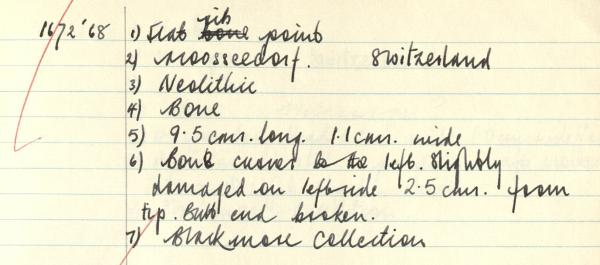 1672'68 1) Flat rib point
2) Moosseedorf. Switzerland
3) Neolithic
4) Bone
5) 9.5 cms. long. 1.1 cms. wide
6) Bone curves to the left. Slightly
damaged on left side 2.5 cms. from
tip. Butt end broken.
7) Blackmore Collection